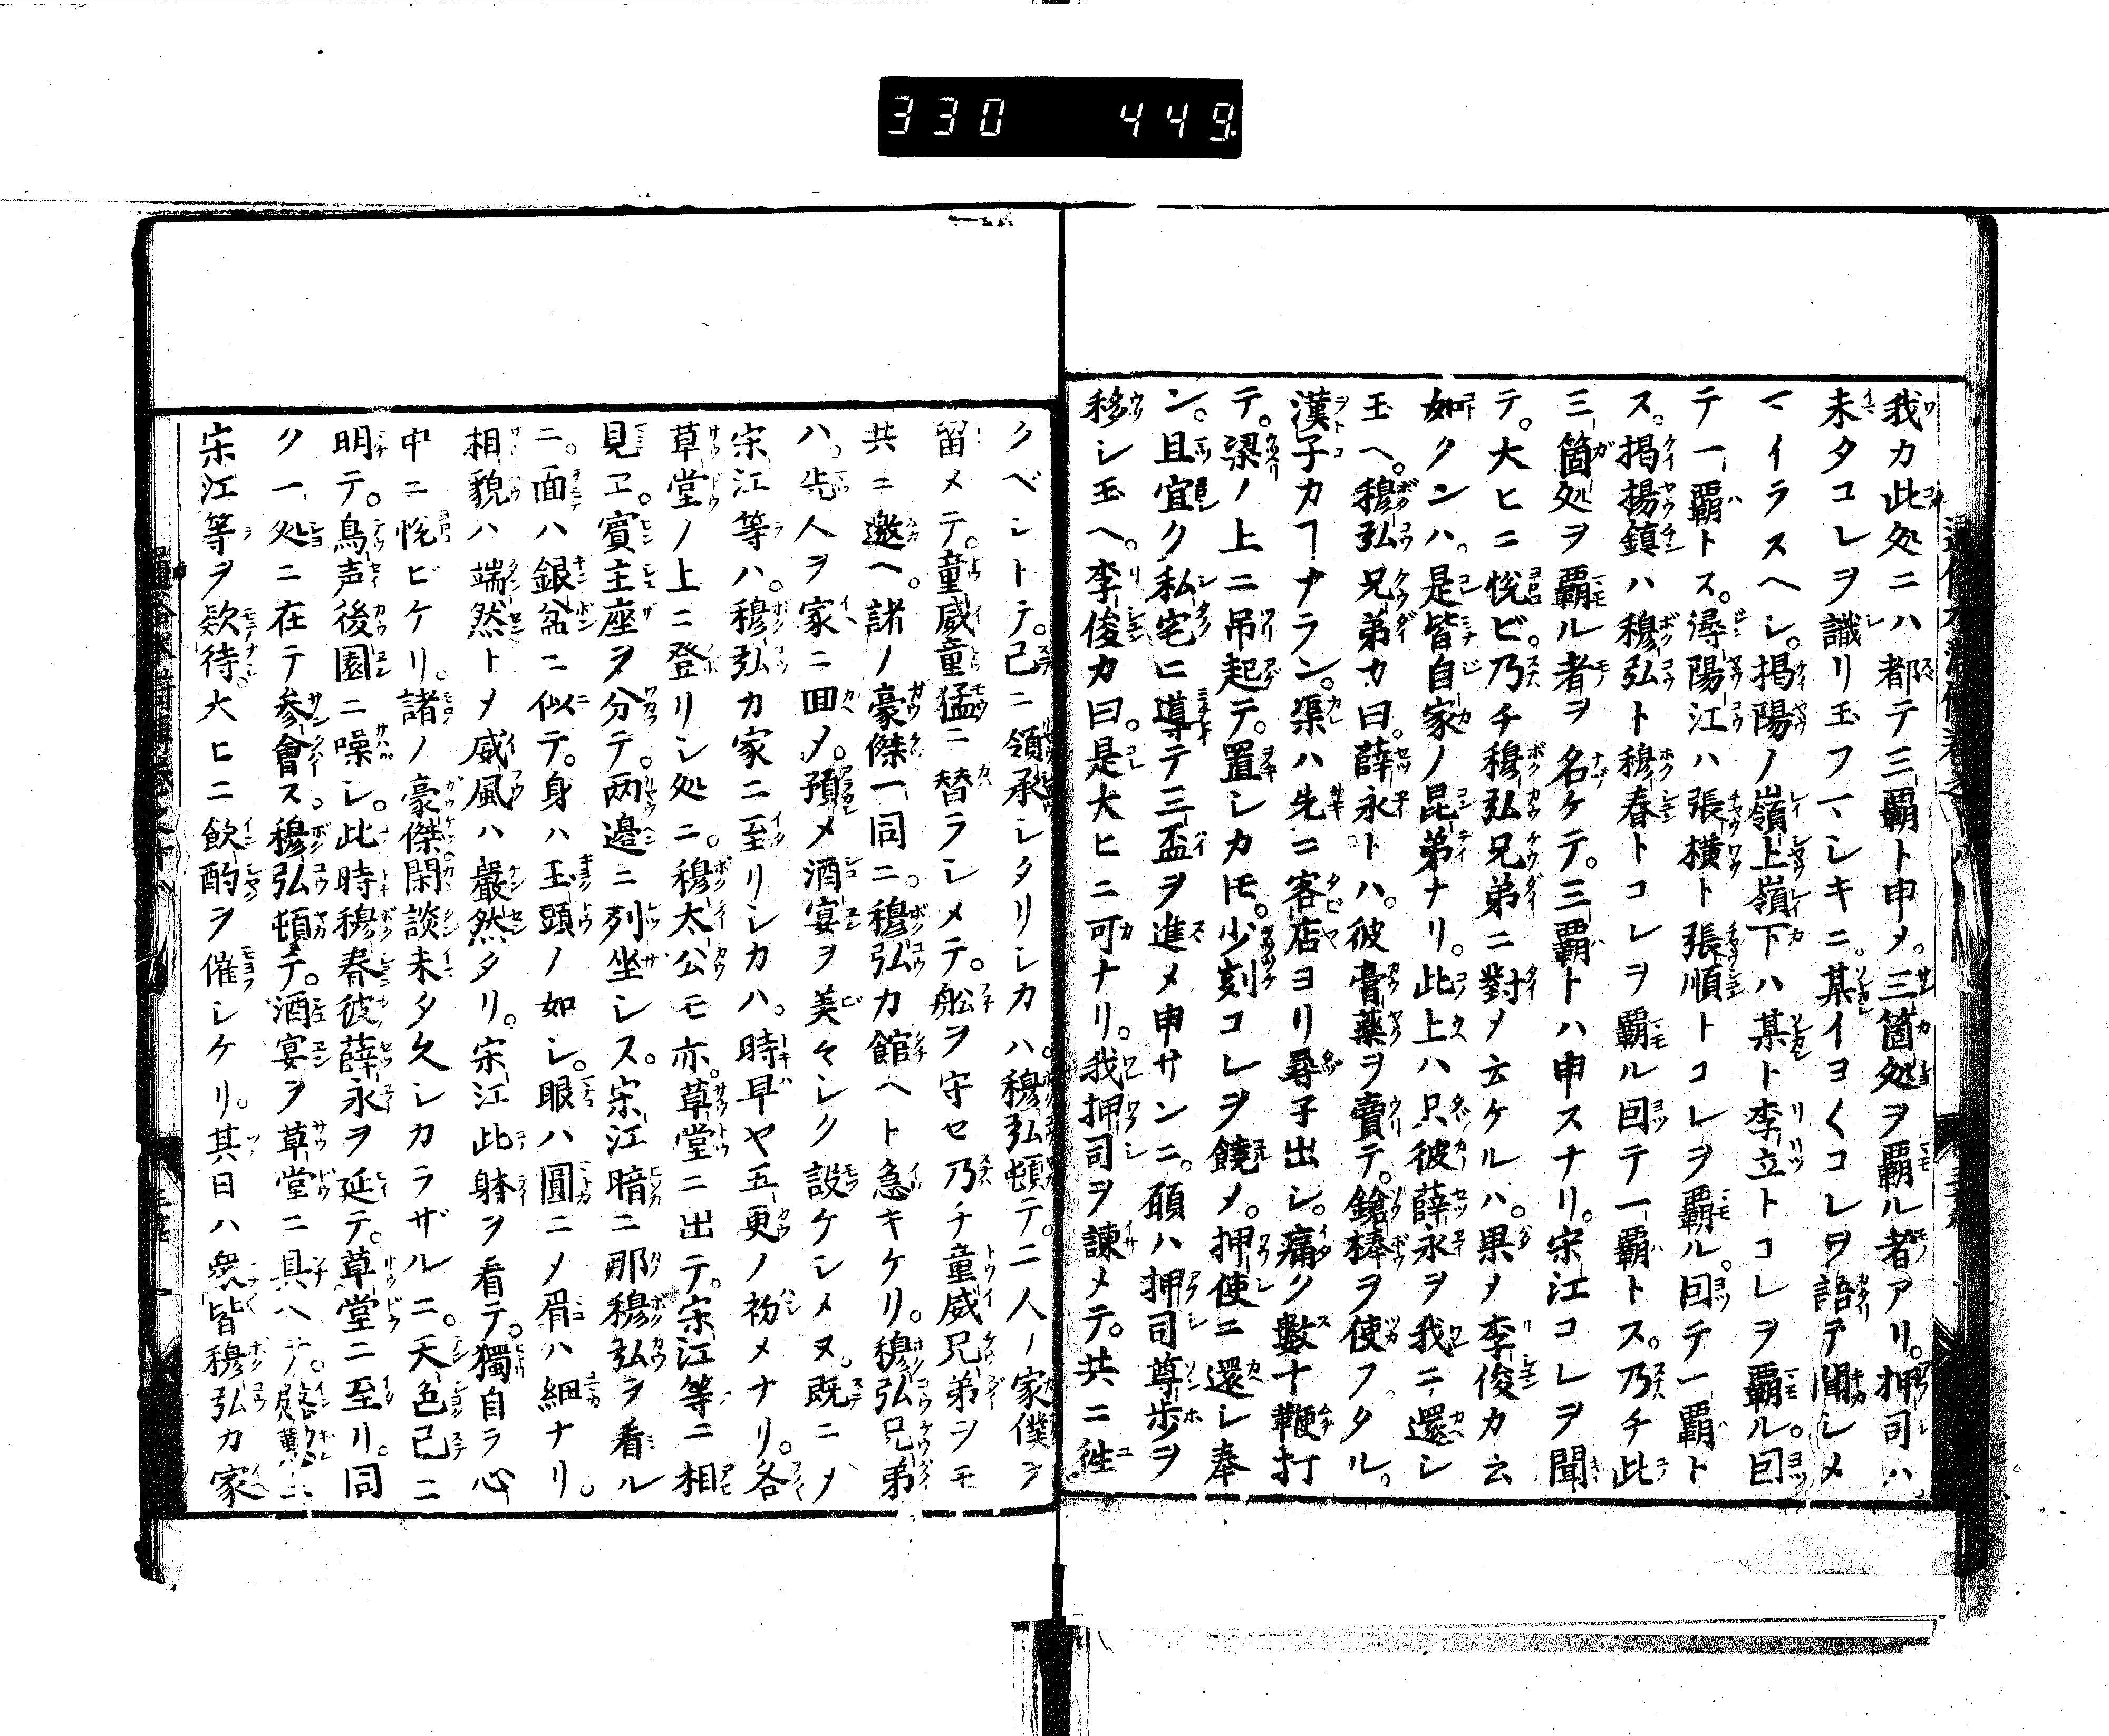 330 449
我カ此処ニハ都テ三覇ト申メ。三箇処ヲ覇ル者アリ。押司ハ
未タコレヲ識リ玉フマシキニ。某イヨくコレヲ語テ聞シメ
マイラスヘシ。掲陽ノ嶺上嶺下ハ某ト李立トコレヲ覇ル。囙
テ一覇トス。潯陽江ハ張横ト張順トコレヲ覇ル。囙テ一覇ト
ス。掲揚鎮ハ穆弘ト穆春トコレヲ覇ル囙テ一覇トス。乃チ此
三箇処ヲ覇ル者ヲ名ケテ。三覇トハ申スナリ。宋江コレヲ聞
テ。大ヒニ悦ビ乃チ穆弘兄弟ニ對メ云ケルハ。果メ李俊カ云
如クンハ。是皆自家ノ昆弟ナリ。此上ハ只彼薛永ヲ我ニ還シ
玉ヘ。穆弘兄弟カ曰。薛永トハ。彼膏藥ヲ賣テ。鎗棒ヲ使フタル。
漢子カヿナラン。渠ハ先ニ客店ヨリ尋子出シ。痛ク數十鞭打
テ。梁ノ上ニ吊起テ。置シカ𪜈。少刻コレヲ饒メ。押使ニ還シ奉
ン。且宜ク私宅ニ導テ三盃ヲ進メ申サンニ。頋ハ押司尊歩ヲ
移シ玉ヘ。李俊カ曰。是大ヒニ可ナリ。我押司ヲ諌メテ。共ニ徃
クベシトテ。已ニ領承シタリシカハ。穆弘頓テ。二人ノ家僕ヲ
留メテ。童威童猛ニ替ラシメテ。舩ヲ守セ乃チ童威兄弟ヲモ
共ニ邀ヘ。諸ノ豪傑一同ニ。穆弘カ館ヘト急キケリ。穆弘兄弟
ハ。先人ヲ家ニ回メ。預メ酒宴ヲ美々シク設ケシメヌ。既ニメ
宋江等ハ。穆弘カ家ニ至リシカハ。時早ヤ五更ノ初メナリ。各
草堂ノ上ニ登リシ処ニ。穆太公モ亦。草堂ニ出テ。宋江等ニ相
見ヱ。賓主座ヲ分テ。両邉ニ列坐シス。宋江暗ニ那穆弘ヲ看ル
ニ。面ハ銀盆ニ似テ。身ハ玉頭ノ如シ。眼ハ圓ニメ眉ハ細ナリ。
相貌ハ端然トメ威風ハ嚴然タリ。宋江此躰ヲ看テ。獨自ラ心
中ニ悦ビケリ。諸ノ豪傑閑談未タ久シカラザルニ。天色已ニ
明テ。鳥声後園ニ噪シ。此時穆春彼薛永ヲ延テ。草堂ニ至リ。同
ク一処ニ在テ参會ス。穆弘頓テ。酒宴ヲ草堂ニ具ヘテ。慇懃ニ
宋江等ヲ欵待。大ヒニ飲酌ヲ催シケリ。其日ハ衆皆穆弘カ家